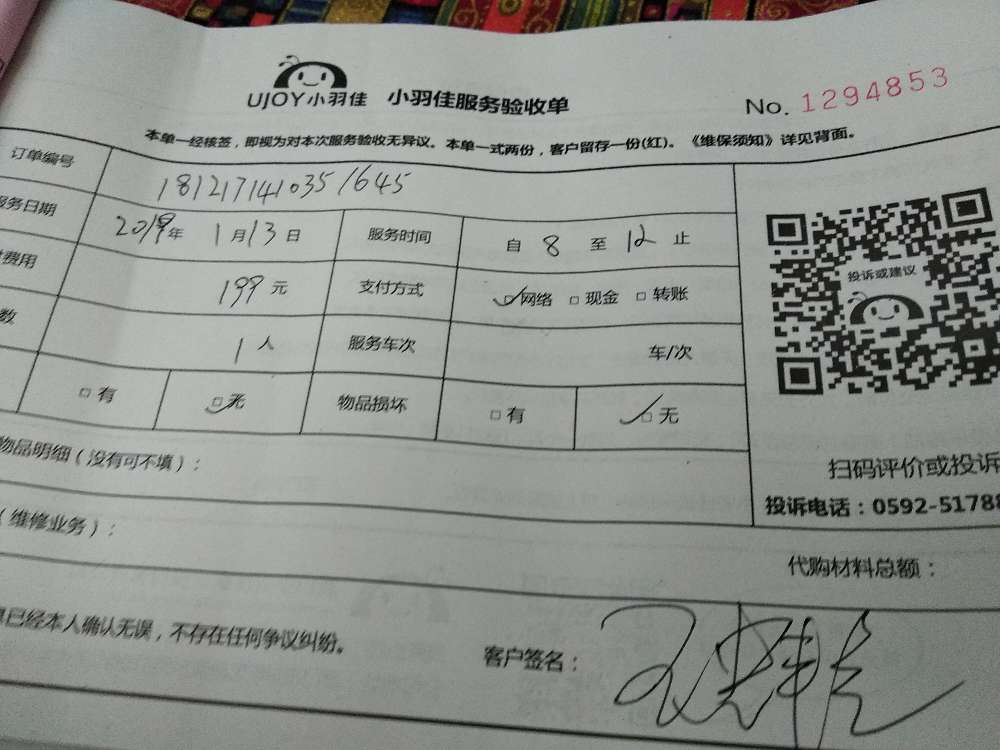 UJOY小羽佳 小羽佳服务验收单 No. 1294853
本单一经核签，即视为对本次服务验收无异议。本单一式两份，客户留存一份(红)。《维保须知》详见背面。
订单编号 1812171410351645
服务日期 2019年 1月13日 服务时间 自 8 至 12 止
费用 199元 支付方式 网络 现金 转账
数 1人 服务车次 车/次
有 无 物品损坏 有 无
投诉或建议
物品明细（没有可不填）：
扫码评价或投诉
投诉电话：0592-5178
（维修业务）：
代购材料总额：
已经本人确认无误，不存在任何争议纠纷。
客户签名：